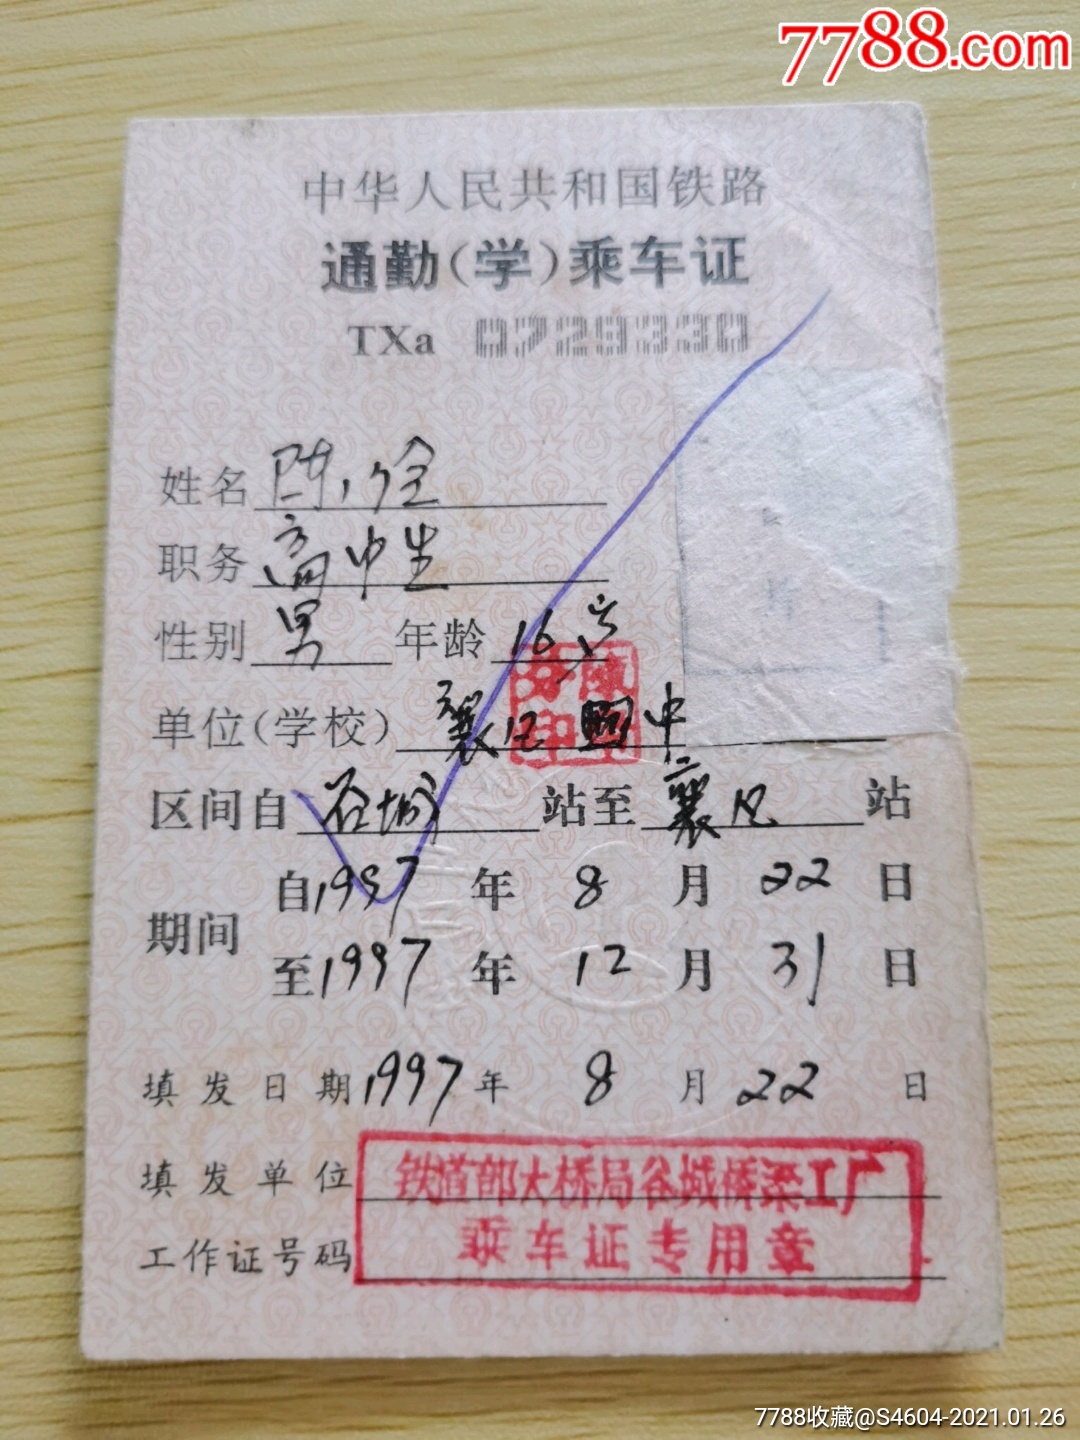 7788.com
中华人民共和国铁路
通勤(学)乘车证
TXa 0729330
姓名 陈
职务 高中生
性别 男 年龄 16岁
单位(学校) 襄 中
区间自 谷城 站至 襄 站
期间 自1997年 8 月 22 日
至1997年 12 月 31 日
填发日期 1997年 8 月 22 日
填发单位 铁道部大桥局谷城桥梁工厂
乘车证专用章
工作证号码
7788收藏@S4604-2021.01.26